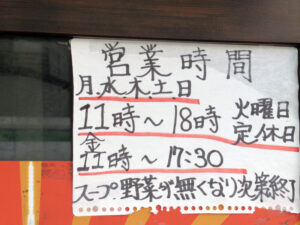 営業時間
月.水.木.土.日
11時～18時 火曜日
定休日
金
11時～17:30
スープ.野菜が無くなり次第終了